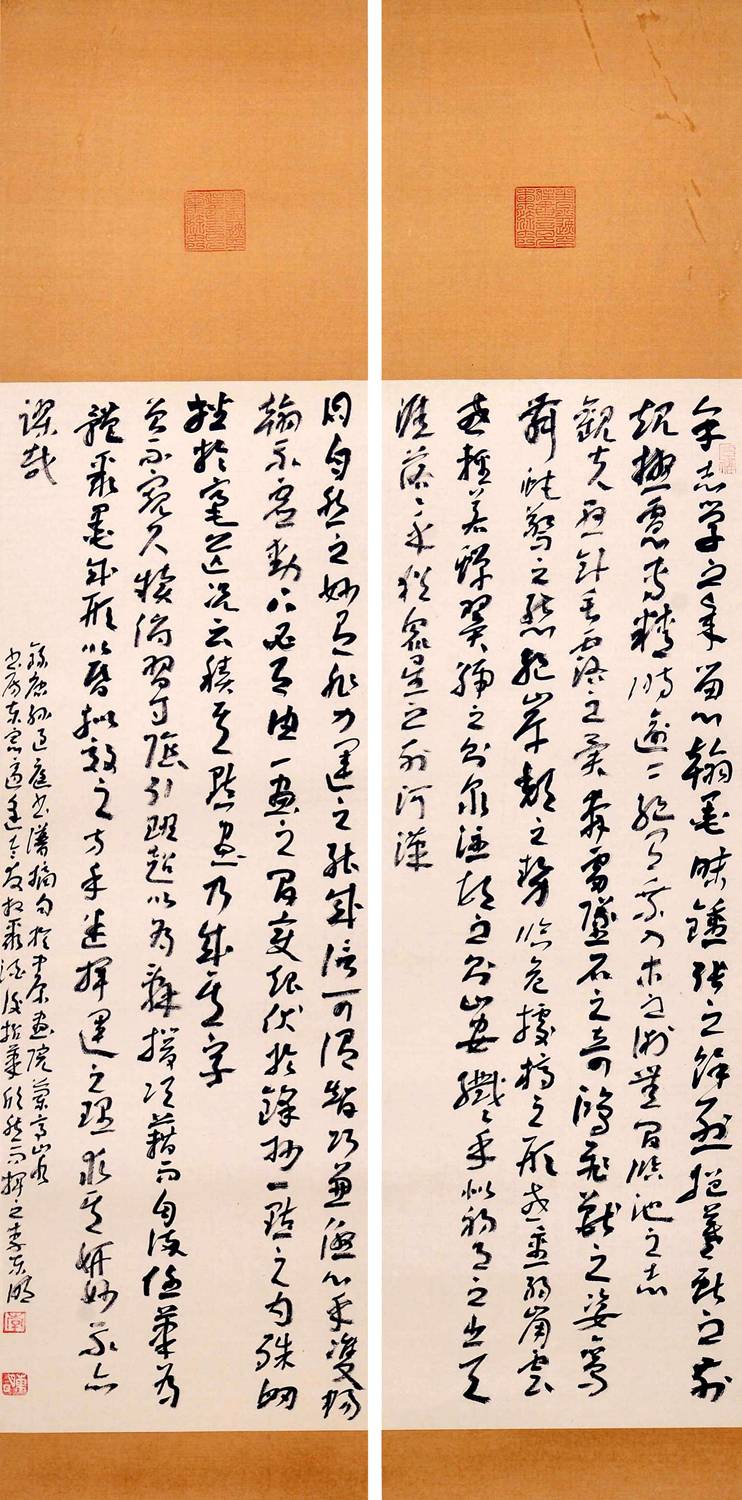 余志學之年留心翰墨味鍾張之餘烈挹羲獻之前
規極慮專精時逾二紀有乖入木之術無間臨池之志
觀夫懸針垂露之異奔雷墜石之奇鴻飛獸之姿鸞
舞蛇驚之態絕岸頹之勢臨危據槁之形或重若崩雲
或輕若蟬翼導之則泉注頓之則山安纖々乎似初月之出天
涯落々乎猶衆星之列河漢
同自然之妙有非力運之能成信可謂智巧兼優心手雙暢
翰不虛動下必有由一畫之間變起伏於鋒杪一點之內殊衄
挫於毫芒況云積其點畫乃成其字
曾不窺尺牘俯習寸陰引班超以為辭援項籍而自滿任筆為
體聚墨成形心昏擬效之方手迷揮運之理求其妍妙不亦
謬哉
錄唐孫過庭書譜摘句於中原畫院
揮之李